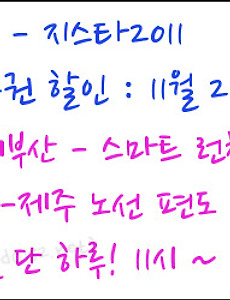 - 지스타2011
권 할인 : 11월 2
부산 - 스마트 런
-제주 노선 편도
단 하루! 11시 ~